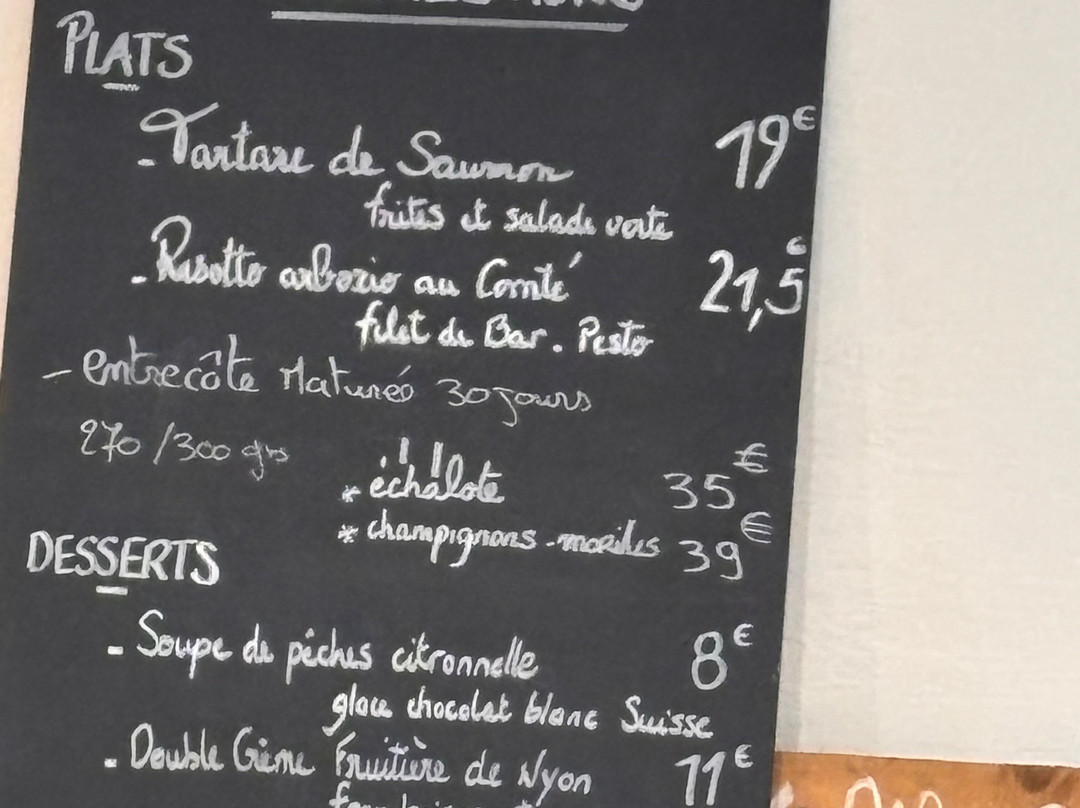 PLATS
- Tartare de Saumon 19€
frites et salade verte
- Risotto arborio au Comté 21,5€
filet de Bar. Pesto
- entrecôte Matureé 30 jours
270/300 grs
* échalote 35€
* champignons-morilles 39€
DESSERTS
- Soupe de pêches citronnelle 8€
glace chocolat blanc Suisse
- Double Crème Fruitière de Nyon 11€